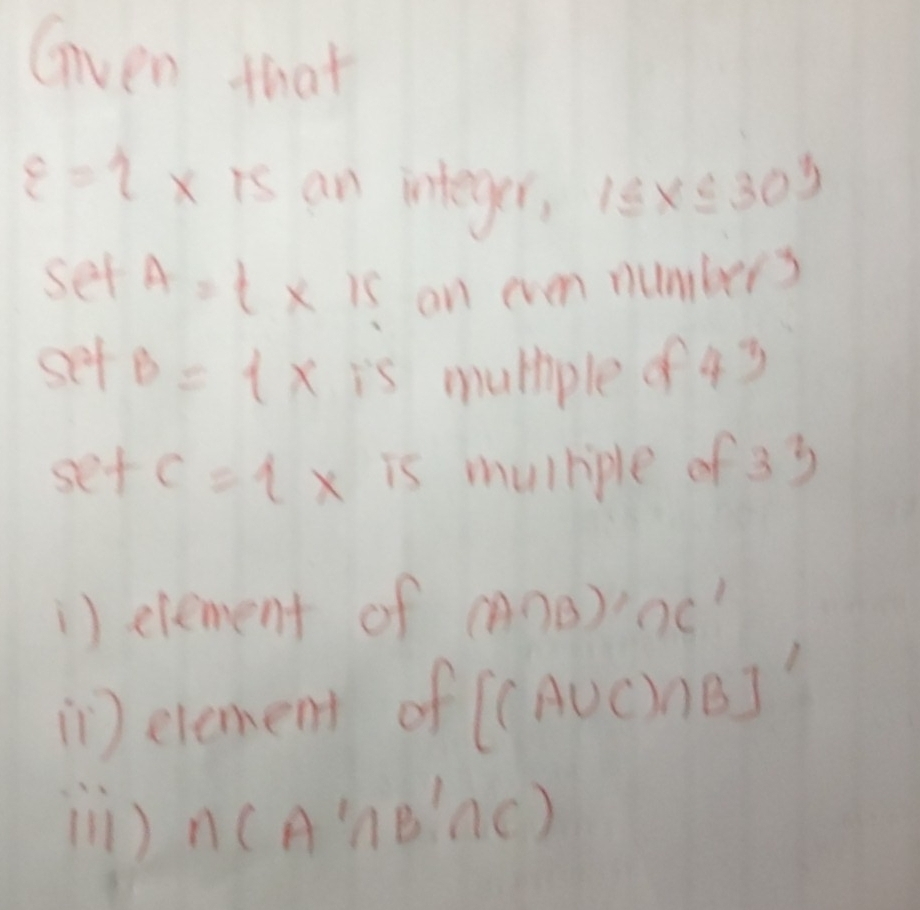 Given that
ε = { x is an integer, 1 ≤ x ≤ 30}
set A = { x is an even number}
set B = { x is multiple of 4}
set C = { x is multiple of 3}
i) element of (A∩B)'∩C'
ii) element of [(A∪C)∩B]'
iii) n(A'∩B'∩C)